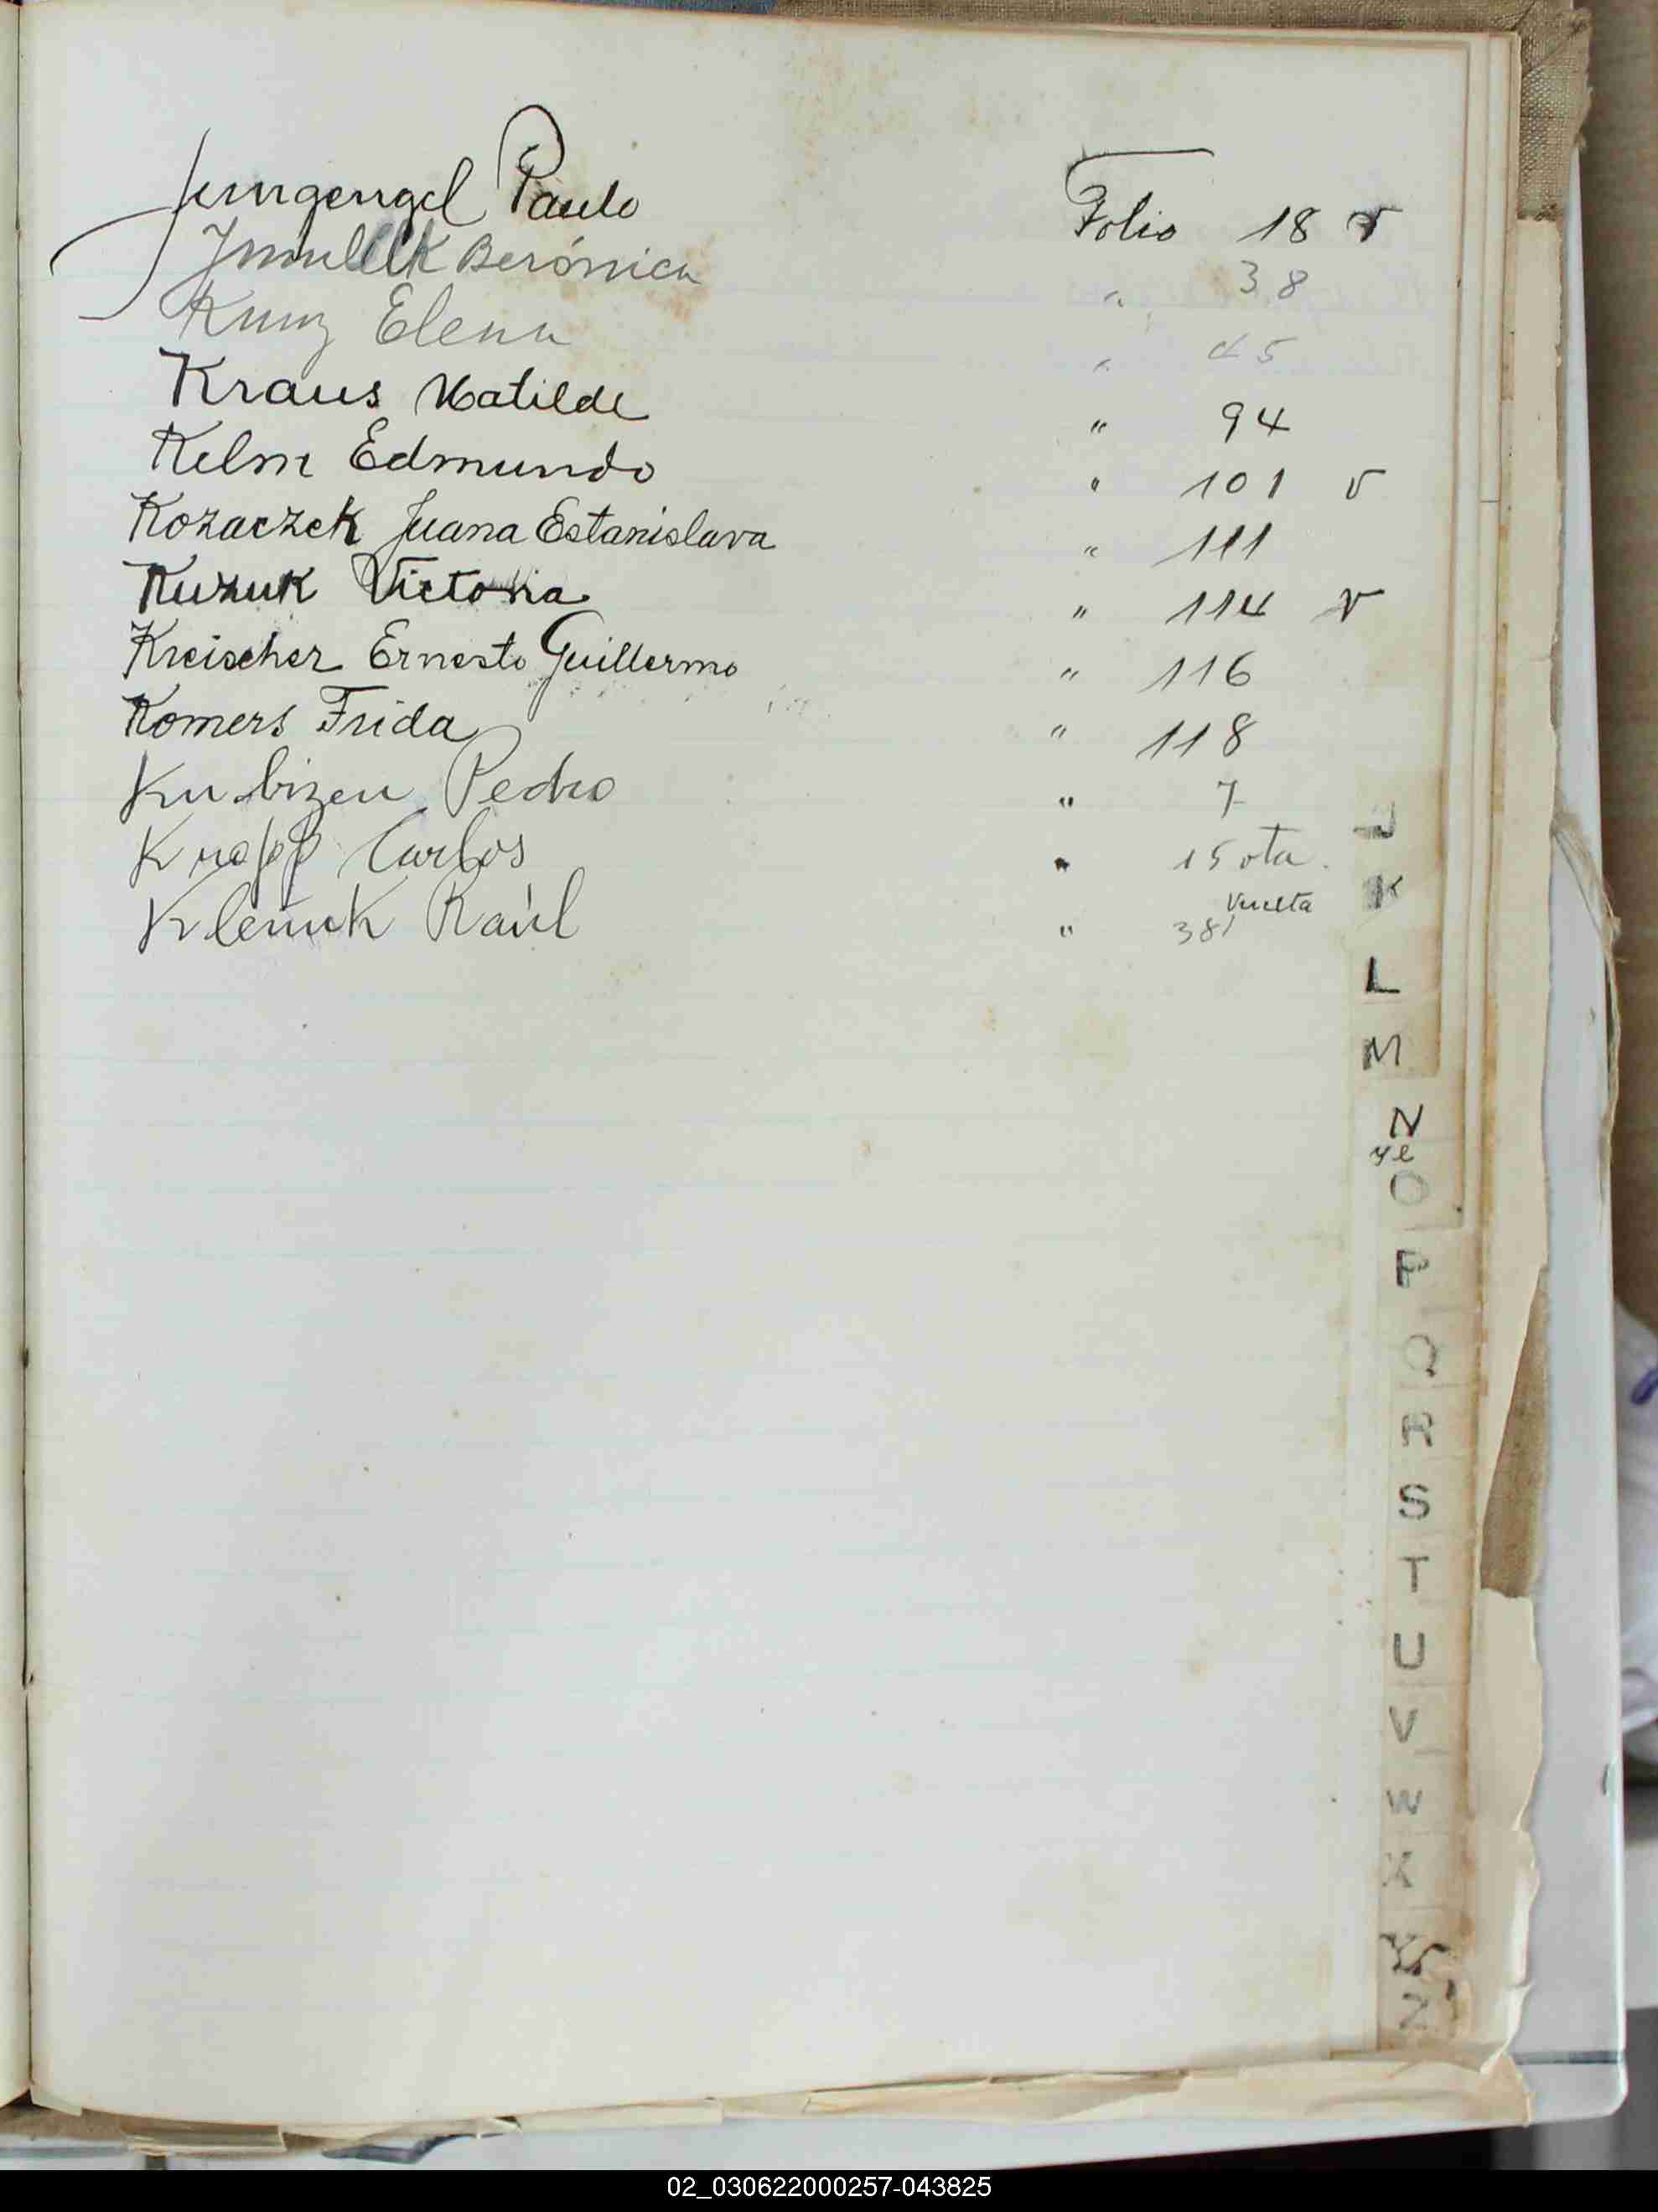 Jungengel Paulo Folio 18 v
Berónica " 38
Kunz Elena " 45
Kraus Matilde " 94
Kelm Edmundo " 101 v
Kozaczek Juana Estanislava " 111
Kuzuk Victoria " 114 v
Kreischer Ernesto Guillermo " 116
Komers Frida " 118
Pedro " 7
Knapp Carlos " 15 vta.
Raúl " 38 vuelta
J
K
L
M
N
O
P
Q
R
S
T
U
V
W
X
Z
02_030622000257-043825